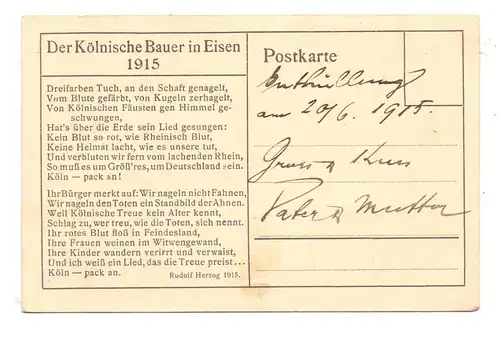 Der Kölnische Bauer in Eisen
1915
Dreifarben Tuch, an den Schaft genagelt,
Vom Blute gefärbt, von Kugeln zerhagelt,
Von Kölnischen Fäusten gen Himmel ge-
schwungen,
Hat's über die Erde sein Lied gesungen:
Kein Blut so rot, wie Rheinisch Blut,
Keine Heimat lacht, wie es unsere tut,
Und verbluten wir fern vom lachenden Rhein,
So muß es um Größ'res, um Deutschland sein.
Köln — pack an!
Ihr Bürger merkt auf: Wir nageln nicht Fahnen,
Wir nageln den Toten ein Standbild der Ahnen.
Weil Kölnische Treue kein Alter kennt,
Schlag zu, wer treu, wie die Toten, sich nennt.
Ihr rotes Blut floß in Feindesland,
Ihre Frauen weinen im Witwengewand,
Ihre Kinder wandern verirrt und verwaist,
Und ich weiß ein Lied, das die Treue preist...
Köln — pack an.
Rudolf Herzog 1915.
Postkarte
Enthüllung
am 20/6. 1915.
Gruss & Kuss
Vater & Mutter